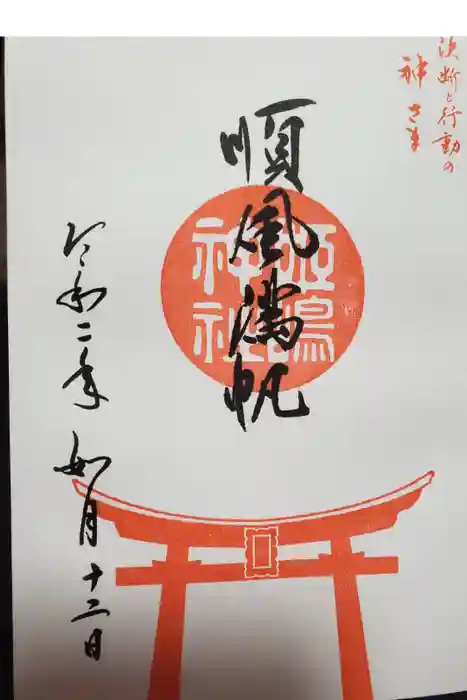 決断と行動の
神さま
順風満帆
姫嶋
神社
令和二年 如月十二日